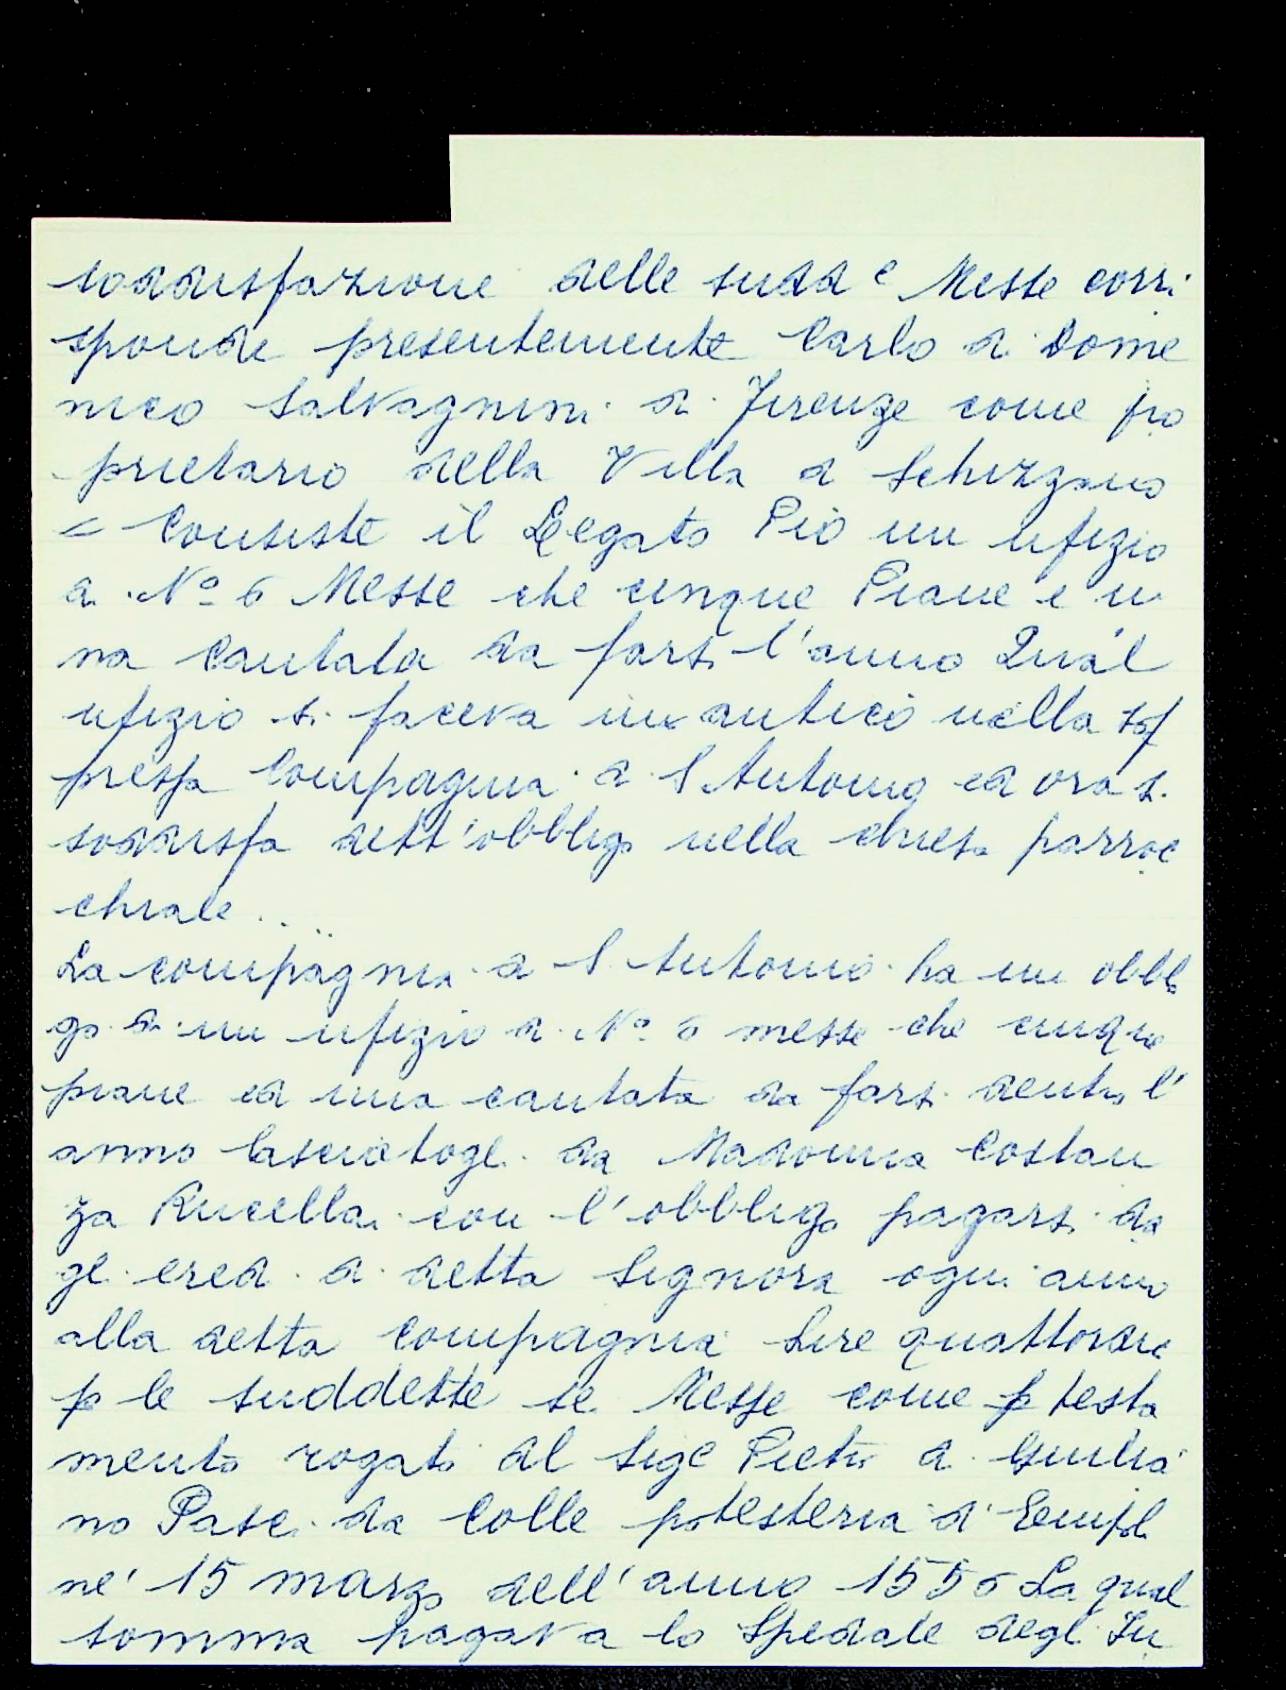 soddisfazione delle sudd e Messe corri
sponde presentemente Carlo di Dome
nico Salvagnini di Firenze come pro
prietario della Villa di Schizzano
= Consiste il Legato Pio un ufizio
di Nº 6 Messe che cinque Piane e u
na Cantata da farsi l'anno Qual
ufizio si faceva in antico nella sop
pressa Compagnia di S Antonio ed ora si
soddisfa dett'obbligo nella chiesa parroc
chiale...
La compagnia di S. Antonio ha un obbli
go di un ufizio di Nº 6 messe che cinque
piane ed una cantata da farsi dentro l'
anno lasciatogli da Madonna Costan
za Rucellai con l'obbligo pagarsi da
gli eredi di detta Signora ogni anno
alla detta Compagnia Lire quattordici
p le suddette sei Messe come p testa
mento rogato dal Sige Pietro di Giulia
no Pasci da Colle potesteria d'Empoli
ne' 15 marzo dell'anno 1556 La qual
somma pagava lo Spedale degli In